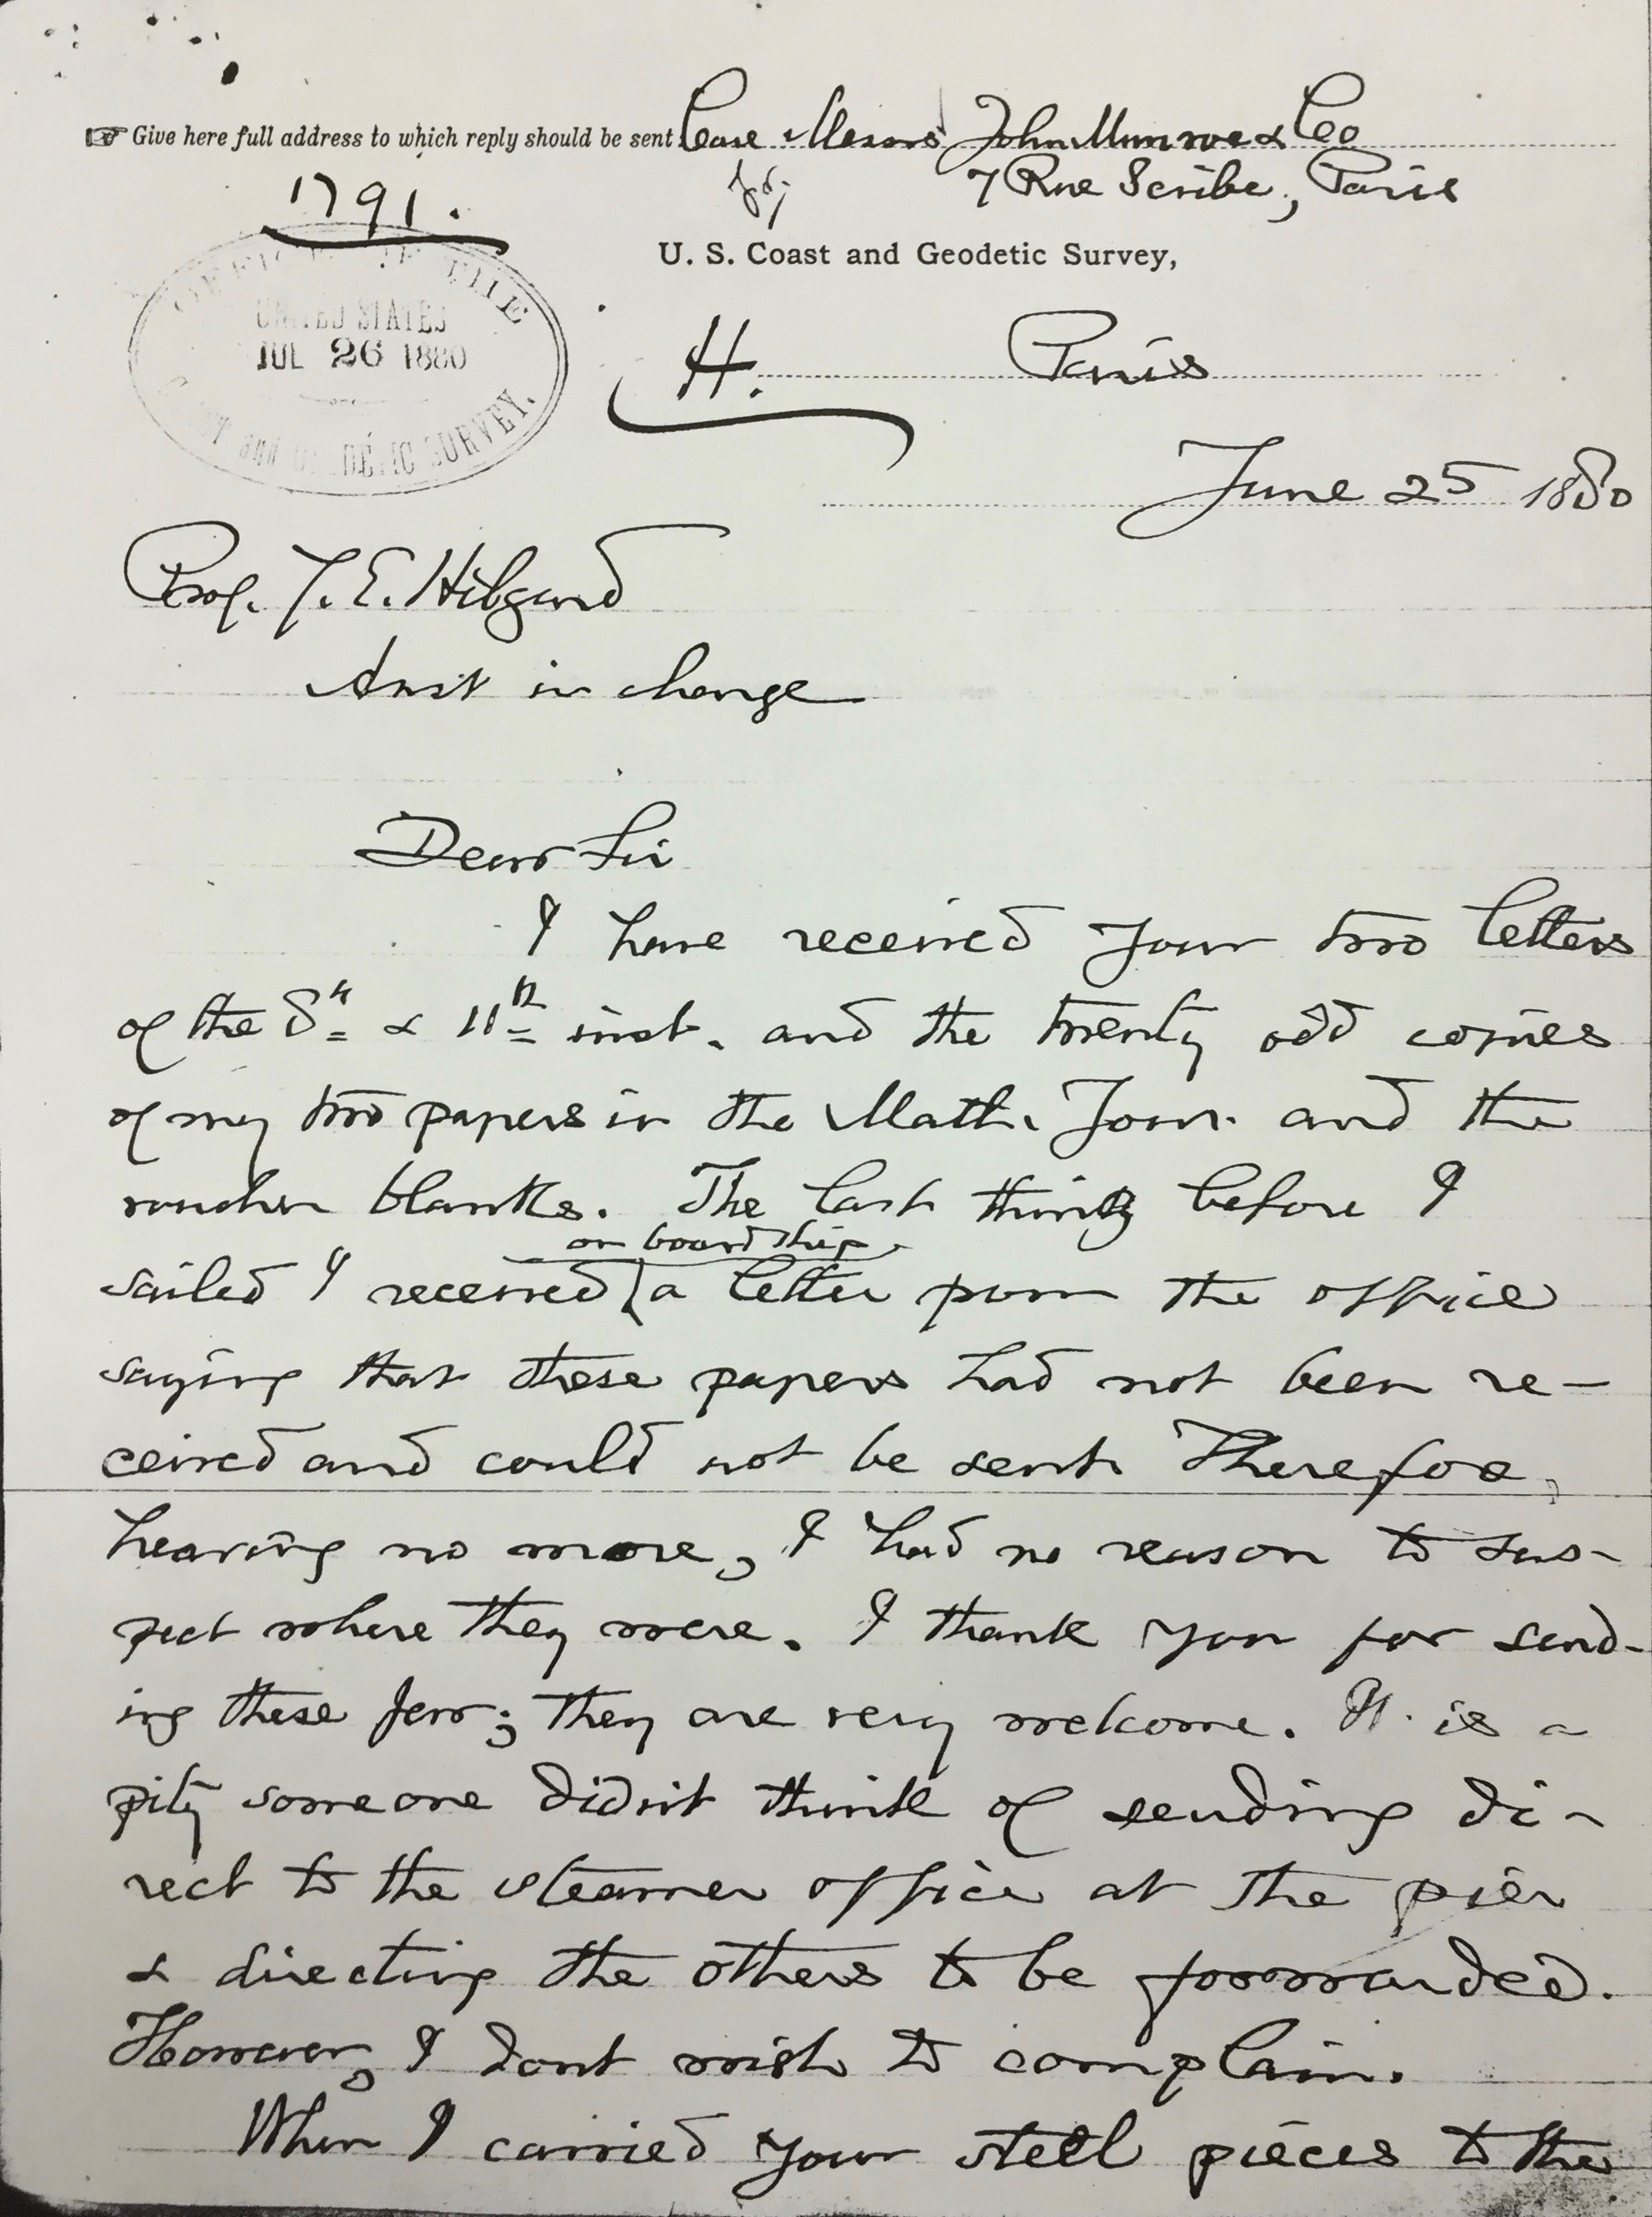 ☞ Give here full address to which reply should be sent Care Messrs John Munroe & Co
7 Rue Scribe, Paris
1791.
U. S. Coast and Geodetic Survey,
OFFICE OF THE
UNITED STATES
JUL 26 1880
COAST and GEODETIC SURVEY.
H. Paris
June 25 1880
Prof. J. E. Hilgard
Asst in charge
Dear Sir
I have received your two letters
of the 8th & 11th inst. and the twenty odd copies
of my two papers in the Math. Jour. and the
voucher blanks. The last thing before I
on board ship
sailed I received a letter from the office
saying that these papers had not been re-
ceived and could not be sent. Therefore,
hearing no more, I had no reason to sus-
pect where they were. I thank you for send-
ing these few; they are very welcome. It is a
pity someone didn't think of sending di-
rect to the steamer office at the pier
& directing the others to be forwarded.
However, I dont wish to complain.
When I carried your steel pieces to the